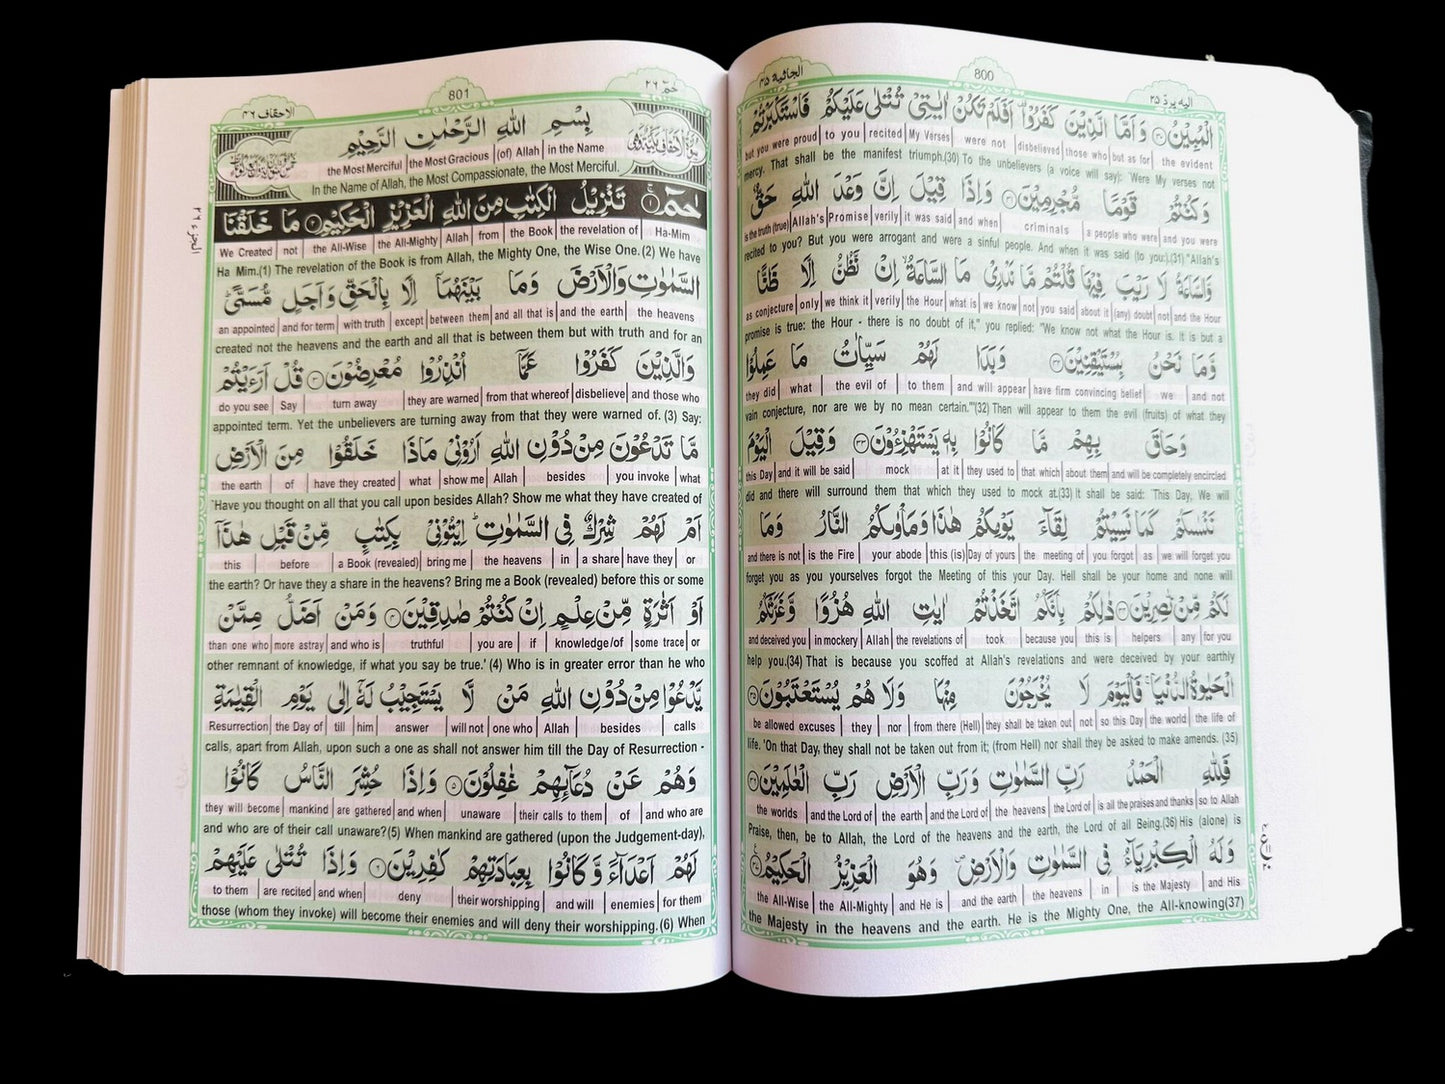 الجاثية ٤٥ 800 اليه يردّ ٢٥
الْمُبِيْنُ ۝٣٠ وَاَمَّا الَّذِيْنَ كَفَرُوْا ۫ اَفَلَمْ تَكُنْ اٰيٰتِيْ تُتْلٰى عَلَيْكُمْ فَاسْتَكْبَرْتُمْ
but you were proud | to you | recited | My Verses | were not | disbelieved | those who | but as for | the evident
mercy. That shall be the manifest triumph.(30) To the unbelievers (a voice will say): 'Were My verses not
وَكُنْتُمْ قَوْمًا مُّجْرِمِيْنَ ۝٣١ وَاِذَا قِيْلَ اِنَّ وَعْدَ اللّٰهِ حَقٌّ
is the truth (true) | Allah's | Promise | verily | it was said | and when | criminals | a people who were | and you were
recited to you? But you were arrogant and were a sinful people. And when it was said (to you:).(31) "Allah's
وَّالسَّاعَةُ لَا رَيْبَ فِيْهَا قُلْتُمْ مَّا نَدْرِيْ مَا السَّاعَةُ ۙ اِنْ نَّظُنُّ اِلَّا ظَنًّا
as conjecture | only | we think it | verily | the Hour | what is | we know | not | you said | about it | (any) doubt | not | and the Hour
promise is true: the Hour - there is no doubt of it," you replied: "We know not what the Hour is. It is but a
وَّمَا نَحْنُ بِمُسْتَيْقِنِيْنَ ۝٣٢ وَبَدَا لَهُمْ سَيِّاٰتُ مَا عَمِلُوْا
they did | what | the evil of | to them | and will appear | have firm convincing belief | we | and not
vain conjecture, nor are we by no mean certain."'(32) Then will appear to them the evil (fruits) of what they
وَحَاقَ بِهِمْ مَّا كَانُوْا بِهٖ يَسْتَهْزِءُوْنَ ۝٣٣ وَقِيْلَ الْيَوْمَ
this Day | and it will be said | mock | at it | they used to | that which | about them | and will be completely encircled
did and there will surround them that which they used to mock at.(33) It shall be said: 'This Day, We will
نَنْسٰىكُمْ كَمَا نَسِيْتُمْ لِقَآءَ يَوْمِكُمْ هٰذَا وَمَاْوٰىكُمُ النَّارُ وَمَا
and there is not | is the Fire | your abode | this (is) | Day of yours | the meeting of | you forgot | as | we will forget you
forget you as you yourselves forgot the Meeting of this your Day. Hell shall be your home and none will
لَكُمْ مِّنْ نّٰصِرِيْنَ ۝٣٤ ذٰلِكُمْ بِاَنَّكُمُ اتَّخَذْتُمْ اٰيٰتِ اللّٰهِ هُزُوًا وَّغَرَّتْكُمُ
and deceived you | in mockery | Allah | the revelations of | took | because you | this is | helpers | any | for you
help you.(34) That is because you scoffed at Allah's revelations and were deceived by your earthly
الْحَيٰوةُ الدُّنْيَا ۚ فَالْيَوْمَ لَا يُخْرَجُوْنَ مِنْهَا وَلَا هُمْ يُسْتَعْتَبُوْنَ ۝٣٥
be allowed excuses | they | nor | from there (Hell) | they shall be taken out | not | so this Day | the world | the life of
life. 'On that Day, they shall not be taken out from it; (from Hell) nor shall they be asked to make amends. (35)
فَلِلّٰهِ الْحَمْدُ رَبِّ السَّمٰوٰتِ وَرَبِّ الْاَرْضِ رَبِّ الْعٰلَمِيْنَ ۝٣٦
the worlds | and the Lord of | the earth | and the Lord of | the heavens | the Lord of | is all the praises and thanks | so to Allah
Praise, then, be to Allah, the Lord of the heavens and the earth, the Lord of all Being.(36) His (alone) is
وَلَهُ الْكِبْرِيَآءُ فِي السَّمٰوٰتِ وَالْاَرْضِ ۪ وَهُوَ الْعَزِيْزُ الْحَكِيْمُ ۝٣٧
the All-Wise | the All-Mighty | and He is | and the earth | the heavens | in | is the Majesty | and His
the Majesty in the heavens and the earth. He is the Mighty One, the All-knowing(37)
الاحقاف ٤٦ 801 حٰمٓ ٢٦
بِسْمِ اللّٰهِ الرَّحْمٰنِ الرَّحِيْمِ
the Most Merciful | the Most Gracious | (of) Allah | in the Name
In the Name of Allah, the Most Compassionate, the Most Merciful.
الجزء ٢٦
حٰمٓ ۝١ تَنْزِيْلُ الْكِتٰبِ مِنَ اللّٰهِ الْعَزِيْزِ الْحَكِيْمِ ۝٢ مَا خَلَقْنَا
We Created | not | the All-Wise | the All-Mighty | Allah | from | the Book | the revelation of | Ha-Mim
Ha Mim.(1) The revelation of the Book is from Allah, the Mighty One, the Wise One. (2) We have
السَّمٰوٰتِ وَالْاَرْضَ وَمَا بَيْنَهُمَآ اِلَّا بِالْحَقِّ وَاَجَلٍ مُّسَمًّى ؕ
an appointed | and for term | with truth | except | between them | and all that is | and the earth | the heavens
created not the heavens and the earth and all that is between them but with truth and for an
وَالَّذِيْنَ كَفَرُوْا عَمَّآ اُنْذِرُوْا مُعْرِضُوْنَ ۝٣ قُلْ اَرَءَيْتُمْ
do you see | Say | turn away | they are warned | from that whereof | disbelieve | and those who
appointed term. Yet the unbelievers are turning away from that they were warned of. (3) Say:
مَّا تَدْعُوْنَ مِنْ دُوْنِ اللّٰهِ اَرُوْنِيْ مَاذَا خَلَقُوْا مِنَ الْاَرْضِ
the earth | of | have they created | what | show me | Allah | besides | you invoke | what
'Have you thought on all that you call upon besides Allah? Show me what they have created of
اَمْ لَهُمْ شِرْكٌ فِي السَّمٰوٰتِ ؕ اِيْتُوْنِيْ بِكِتٰبٍ مِّنْ قَبْلِ هٰذَآ
this | before | a Book (revealed) | bring me | the heavens | in | a share | have they | or
the earth? Or have they a share in the heavens? Bring me a Book (revealed) before this or some
اَوْ اَثٰرَةٍ مِّنْ عِلْمٍ اِنْ كُنْتُمْ صٰدِقِيْنَ ۝٤ وَمَنْ اَضَلُّ مِمَّنْ
than one who | more astray | and who is | truthful | you are | if | knowledge/of | some trace | or
other remnant of knowledge, if what you say be true.' (4) Who is in greater error than he who
يَّدْعُوْا مِنْ دُوْنِ اللّٰهِ مَنْ لَّا يَسْتَجِيْبُ لَهٗٓ اِلٰى يَوْمِ الْقِيٰمَةِ
Resurrection | the Day of | till | him | answer | will not | one who | Allah | besides | calls
calls, apart from Allah, upon such a one as shall not answer him till the Day of Resurrection -
وَهُمْ عَنْ دُعَآئِهِمْ غٰفِلُوْنَ ۝٥ وَاِذَا حُشِرَ النَّاسُ كَانُوْا
they will become | mankind | are gathered | and when | unaware | their calls to them | of | and who are
and who are of their call unaware?(5) When mankind are gathered (upon the Judgement-day),
لَهُمْ اَعْدَآءً وَّكَانُوْا بِعِبَادَتِهِمْ كٰفِرِيْنَ ۝٦ وَاِذَا تُتْلٰى عَلَيْهِمْ
to them | are recited | and when | deny | their worshipping | and will | enemies | for them
those (whom they invoke) will become their enemies and will deny their worshipping.(6) When